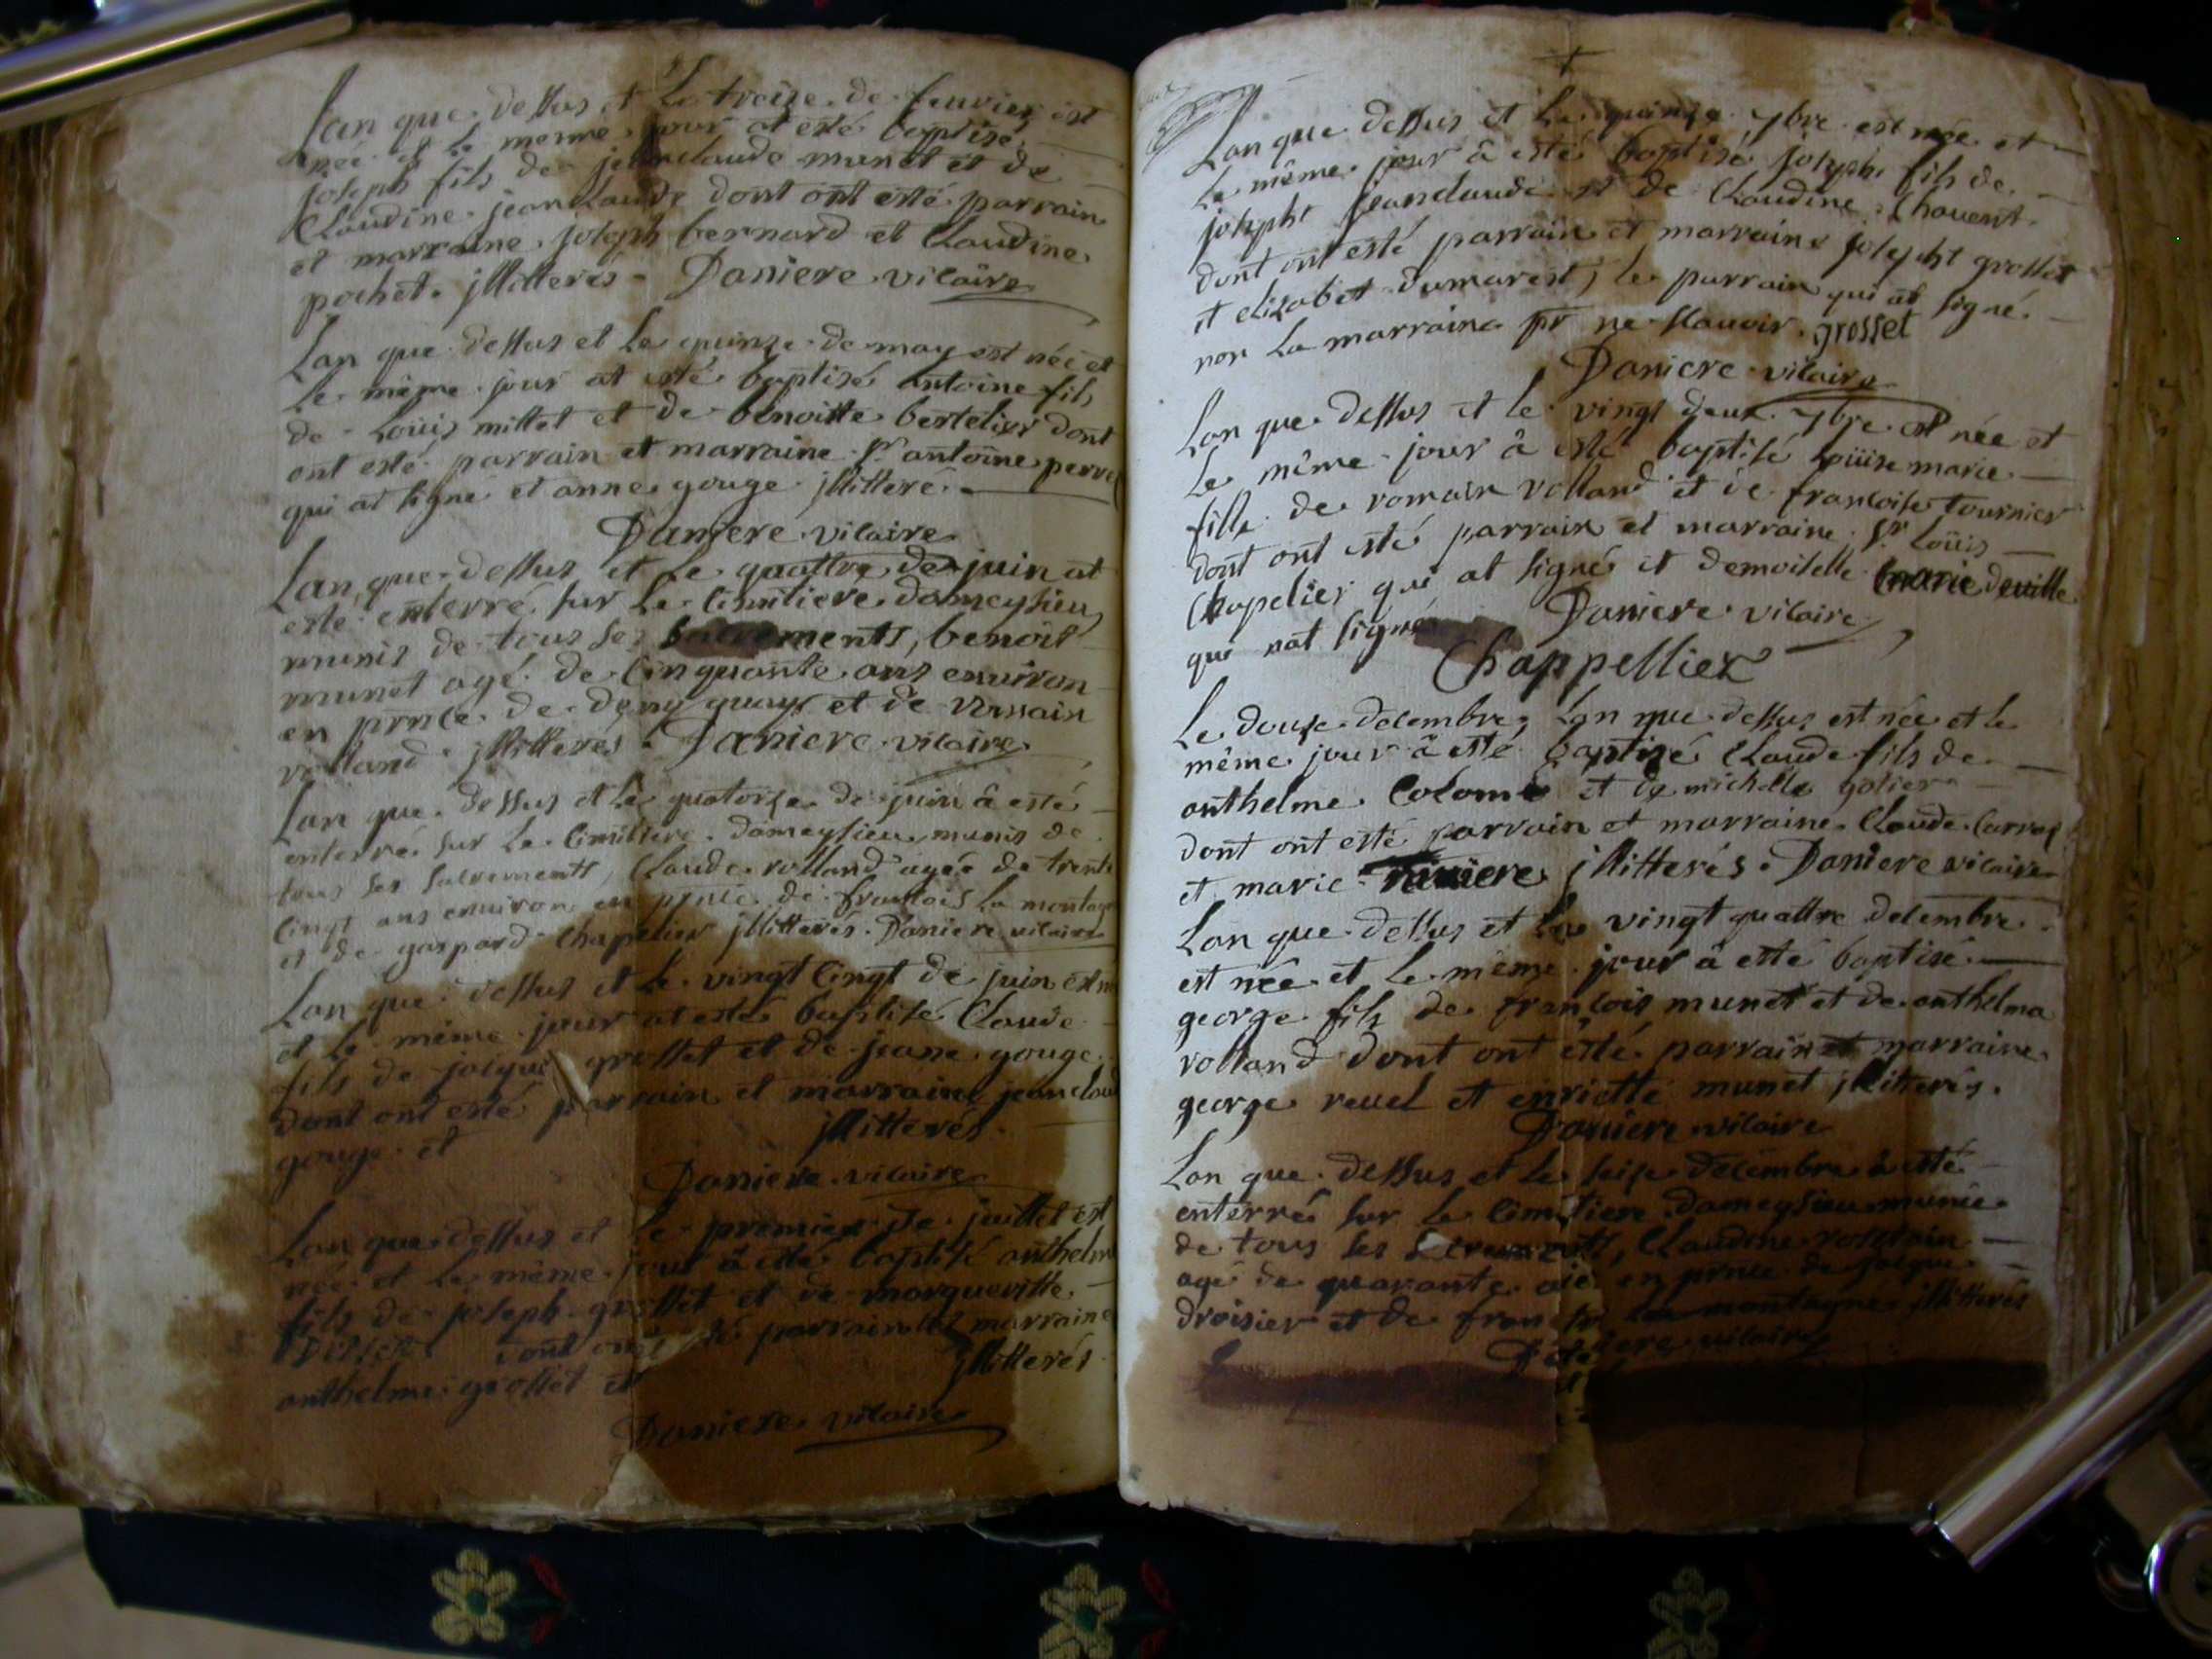 Lan que dessus et le treize de feuvrier est
née et le meme jour at esté baptisé
joseph fils de jeanclaude munet et de
Claudine jeanclaude dont ont esté parrain
et marraine joseph bernard et Claudine
pochet illitterés Daniere vicaire
Lan que dessus et le quinze de may est née et
le même jour at esté baptisé antoine fils
de Loüis millet et de benoitte bertelier dont
ont esté parrain et marraine Sr antoine
qui at signé et anne gouge illitteré
Daniere vicaire
Lan que dessus et le quattre de juin at
esté enterré sur le Cimitiere dameysieu
munis de tous ses sacrements, benoit
munet agé de Cinquante ans environ
en prnce de deny quay et de romain
volland illitterés Daniere vicaire
Lan que dessus et le quatorse de juin â esté
enterré sur le Cimitiere dameysieu munis de
tous ses sacrements, Claude volland agée de trente
Cingt ans environ en prnce de francois la montagne
et de gaspard Chapelier illitterés Daniere vicaire
Lan que dessus et le vingt Cingt de juin est
et le même jour at esté baptisé Claude
fils de jacque grosset et de jeane gouge
dont ont esté parrain et marraine jean clau
gouge et illitterés
Daniere vicaire
Lan que dessus et le premier de juillet est
née et le même jour â esté baptisé anthelm
fils de joseph grosset et de margueritte
dont ont esté parrain et marraine
anthelme grosset et illitterés
Daniere vicaire
Lan que dessus et le quinze 7bre est née et
le même jour â esté baptisé joseph fils de
josepht jeanclaude et de Claudine Chouent
dont ont esté parrain et marraine josepht grosset
et elizabet dumarest, le parrain qui at signé
non la marraine pr ne scauoir grosset
Daniere vicaire
Lan que dessus et le vingt deux 7bre est née et
le même jour â esté baptisé Loüise marie
fille de romain volland et de francoise tournier
dont ont esté parrain et marraine Sr Loüis
Chapelier qui at signé et demoiselle marie deville
qui nat signé Daniere vicaire
Chappellier
Le douse decembre Lan que dessus est née et le
même jour â esté baptisé Claude fils de
anthelme Colomb et de michelle golier
dont ont esté parrain et marraine Claude Carra
et marie illitterés Daniere vicaire
Lan que dessus et le vingt quattre decembre
est née et le même jour â esté baptisé
george fils de francois munet et de anthelma
volland dont ont esté parrain et marraine
george revel et enriette munet illiterés
Daniere vicaire
Lan que dessus et le seise decembre â esté
enterré sur le Cimitiere dameysieu munie
de tous ses sacrements, Claudine
agé de quarante en prnce de jacque
droisier et de la montagne illitterés
Daniere vicaire